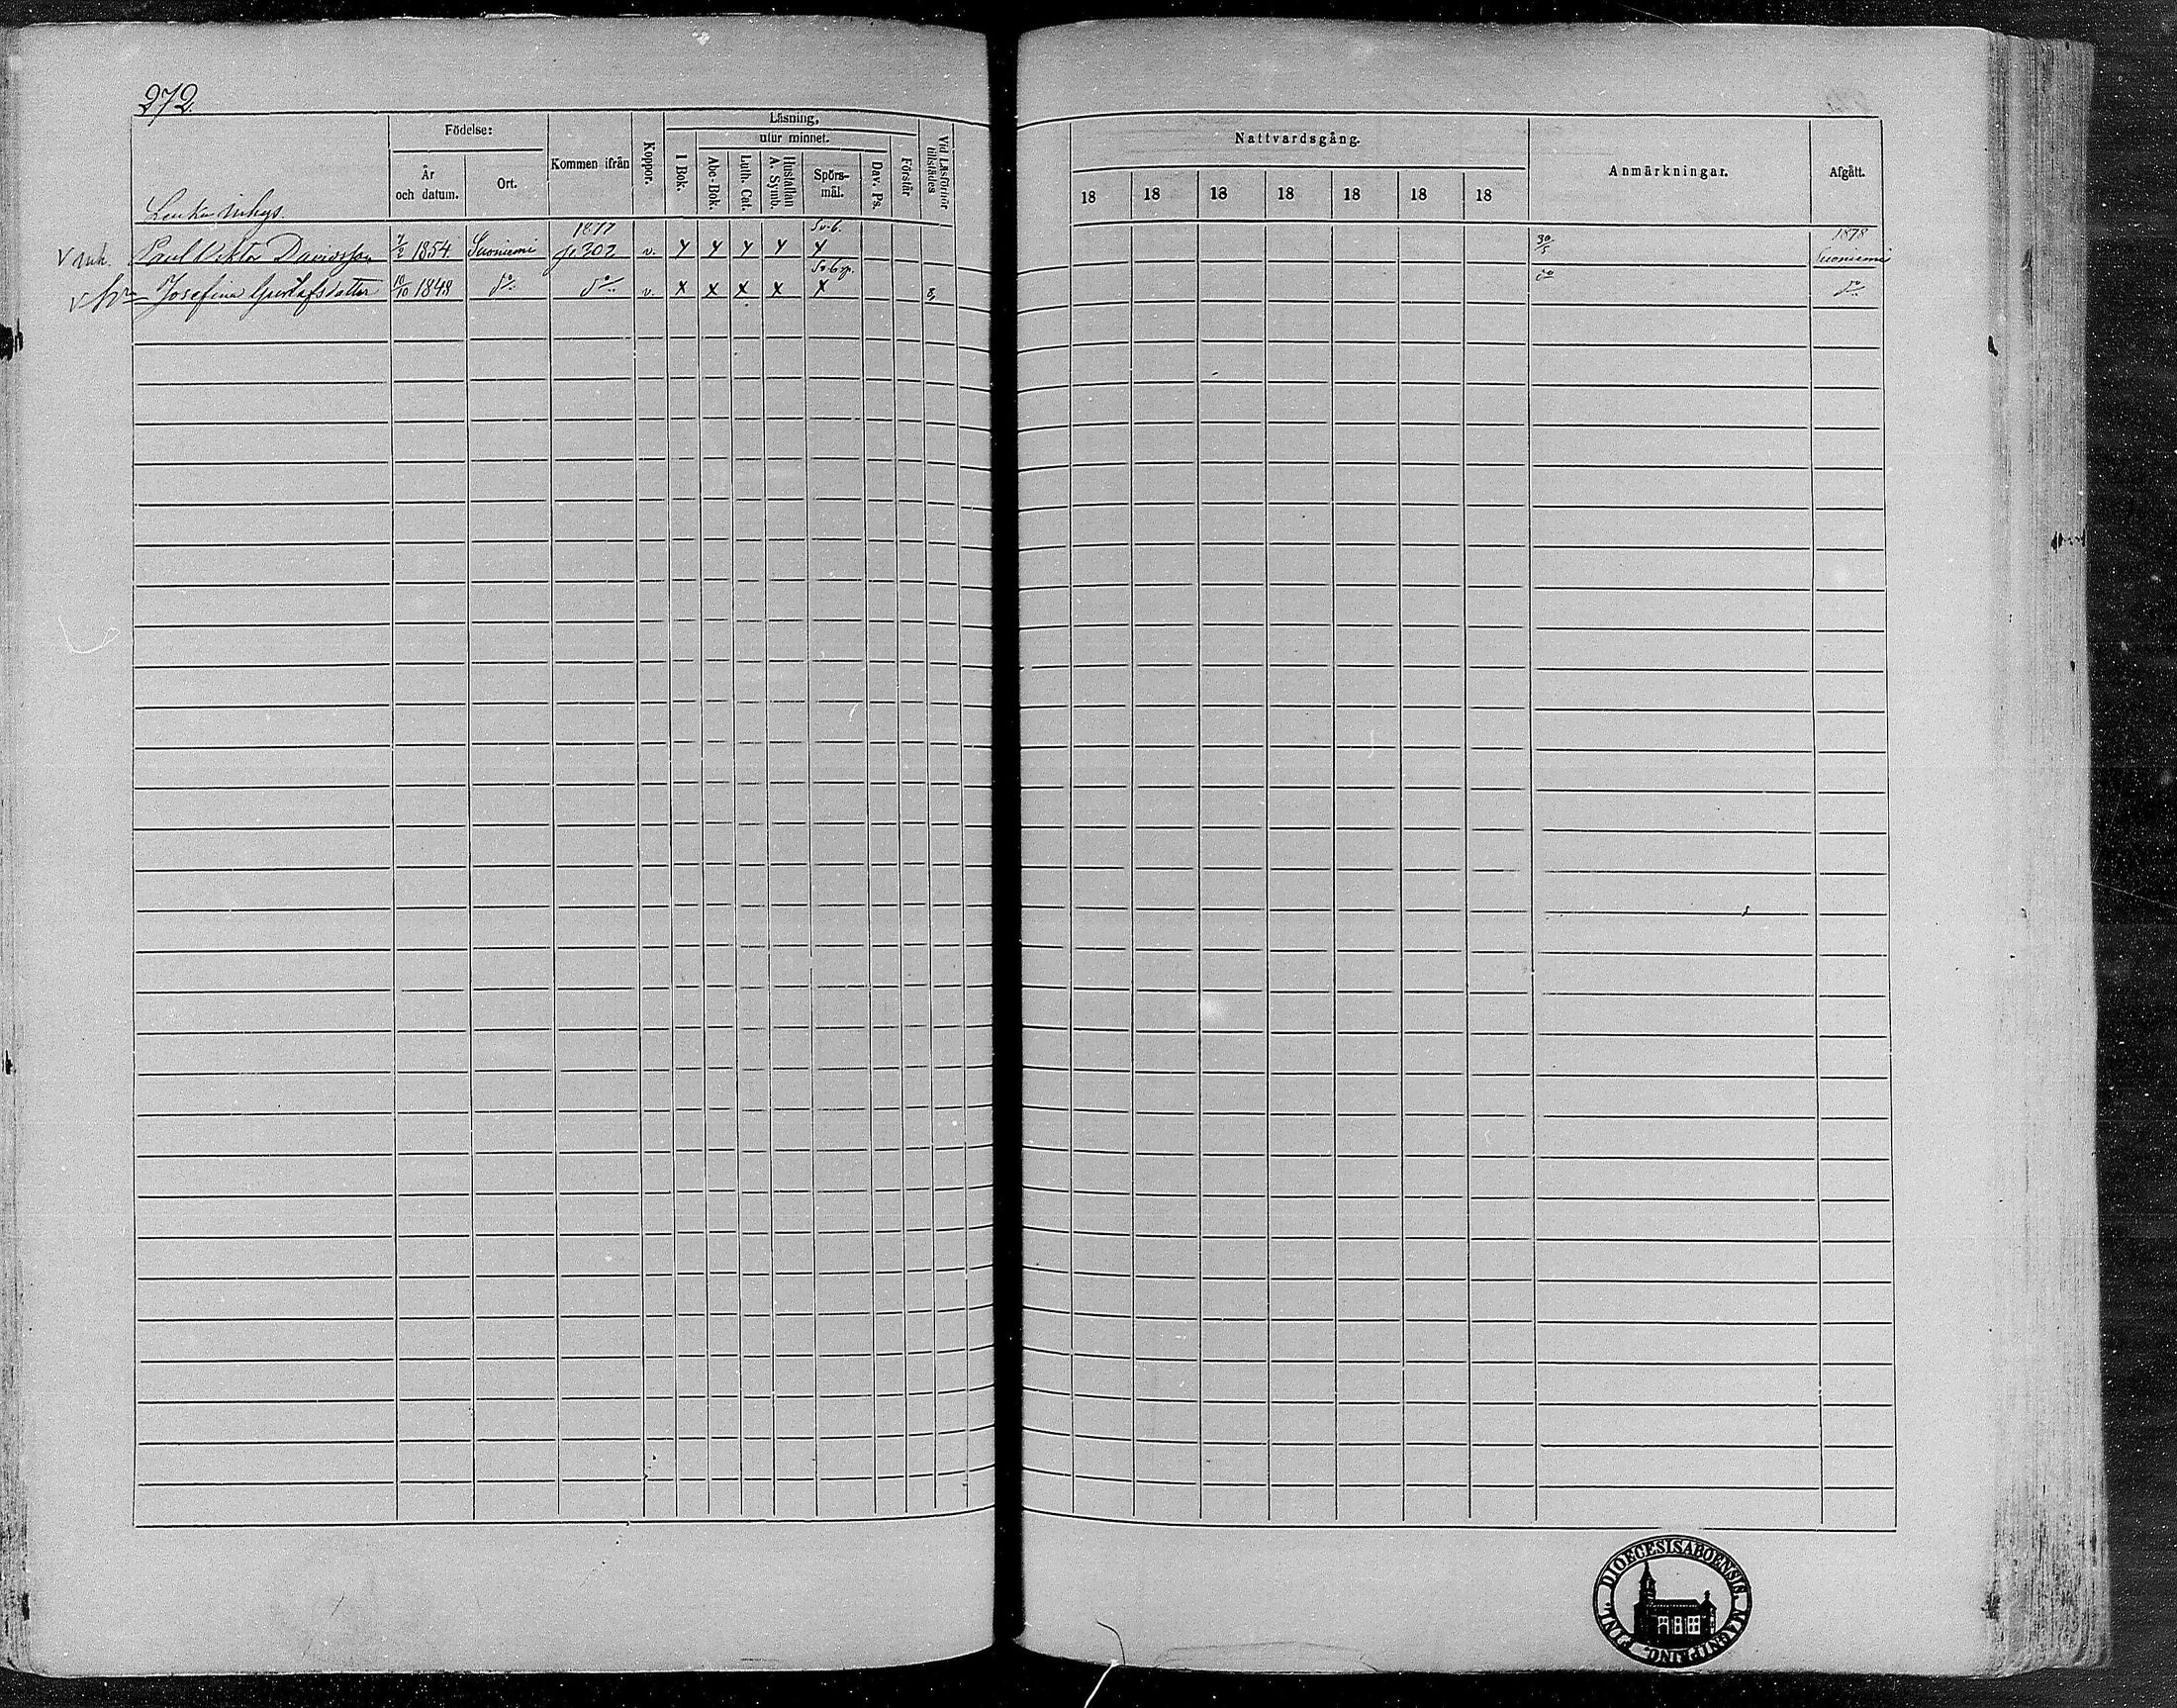 272.
Födelse:
År och datum.
Ort.
Kommen ifrån
Koppor.
Läsning,
utur minnet.
I Bok.
Abc-Bok.
Luth. Cat.
Hustaflan A. Symb.
Spörs-mål.
Dav. Ps.
Förstår
Vid Läsförhör tillstädes
Nattvardsgång.
18 18 18 18 18 18 18
Anmärkningar.
Afgått.
1877 Sv. b. 1878
v inh. Paul Viktor Davidsson 7/2 1854. Suoniemi p. 302 v. 30/5 Suoniemi
Josefina Gustafsdotter 10/10 1848 do do v. do do
DIOECESIS ABOENSIS. MAGNI PRINC. FINL.